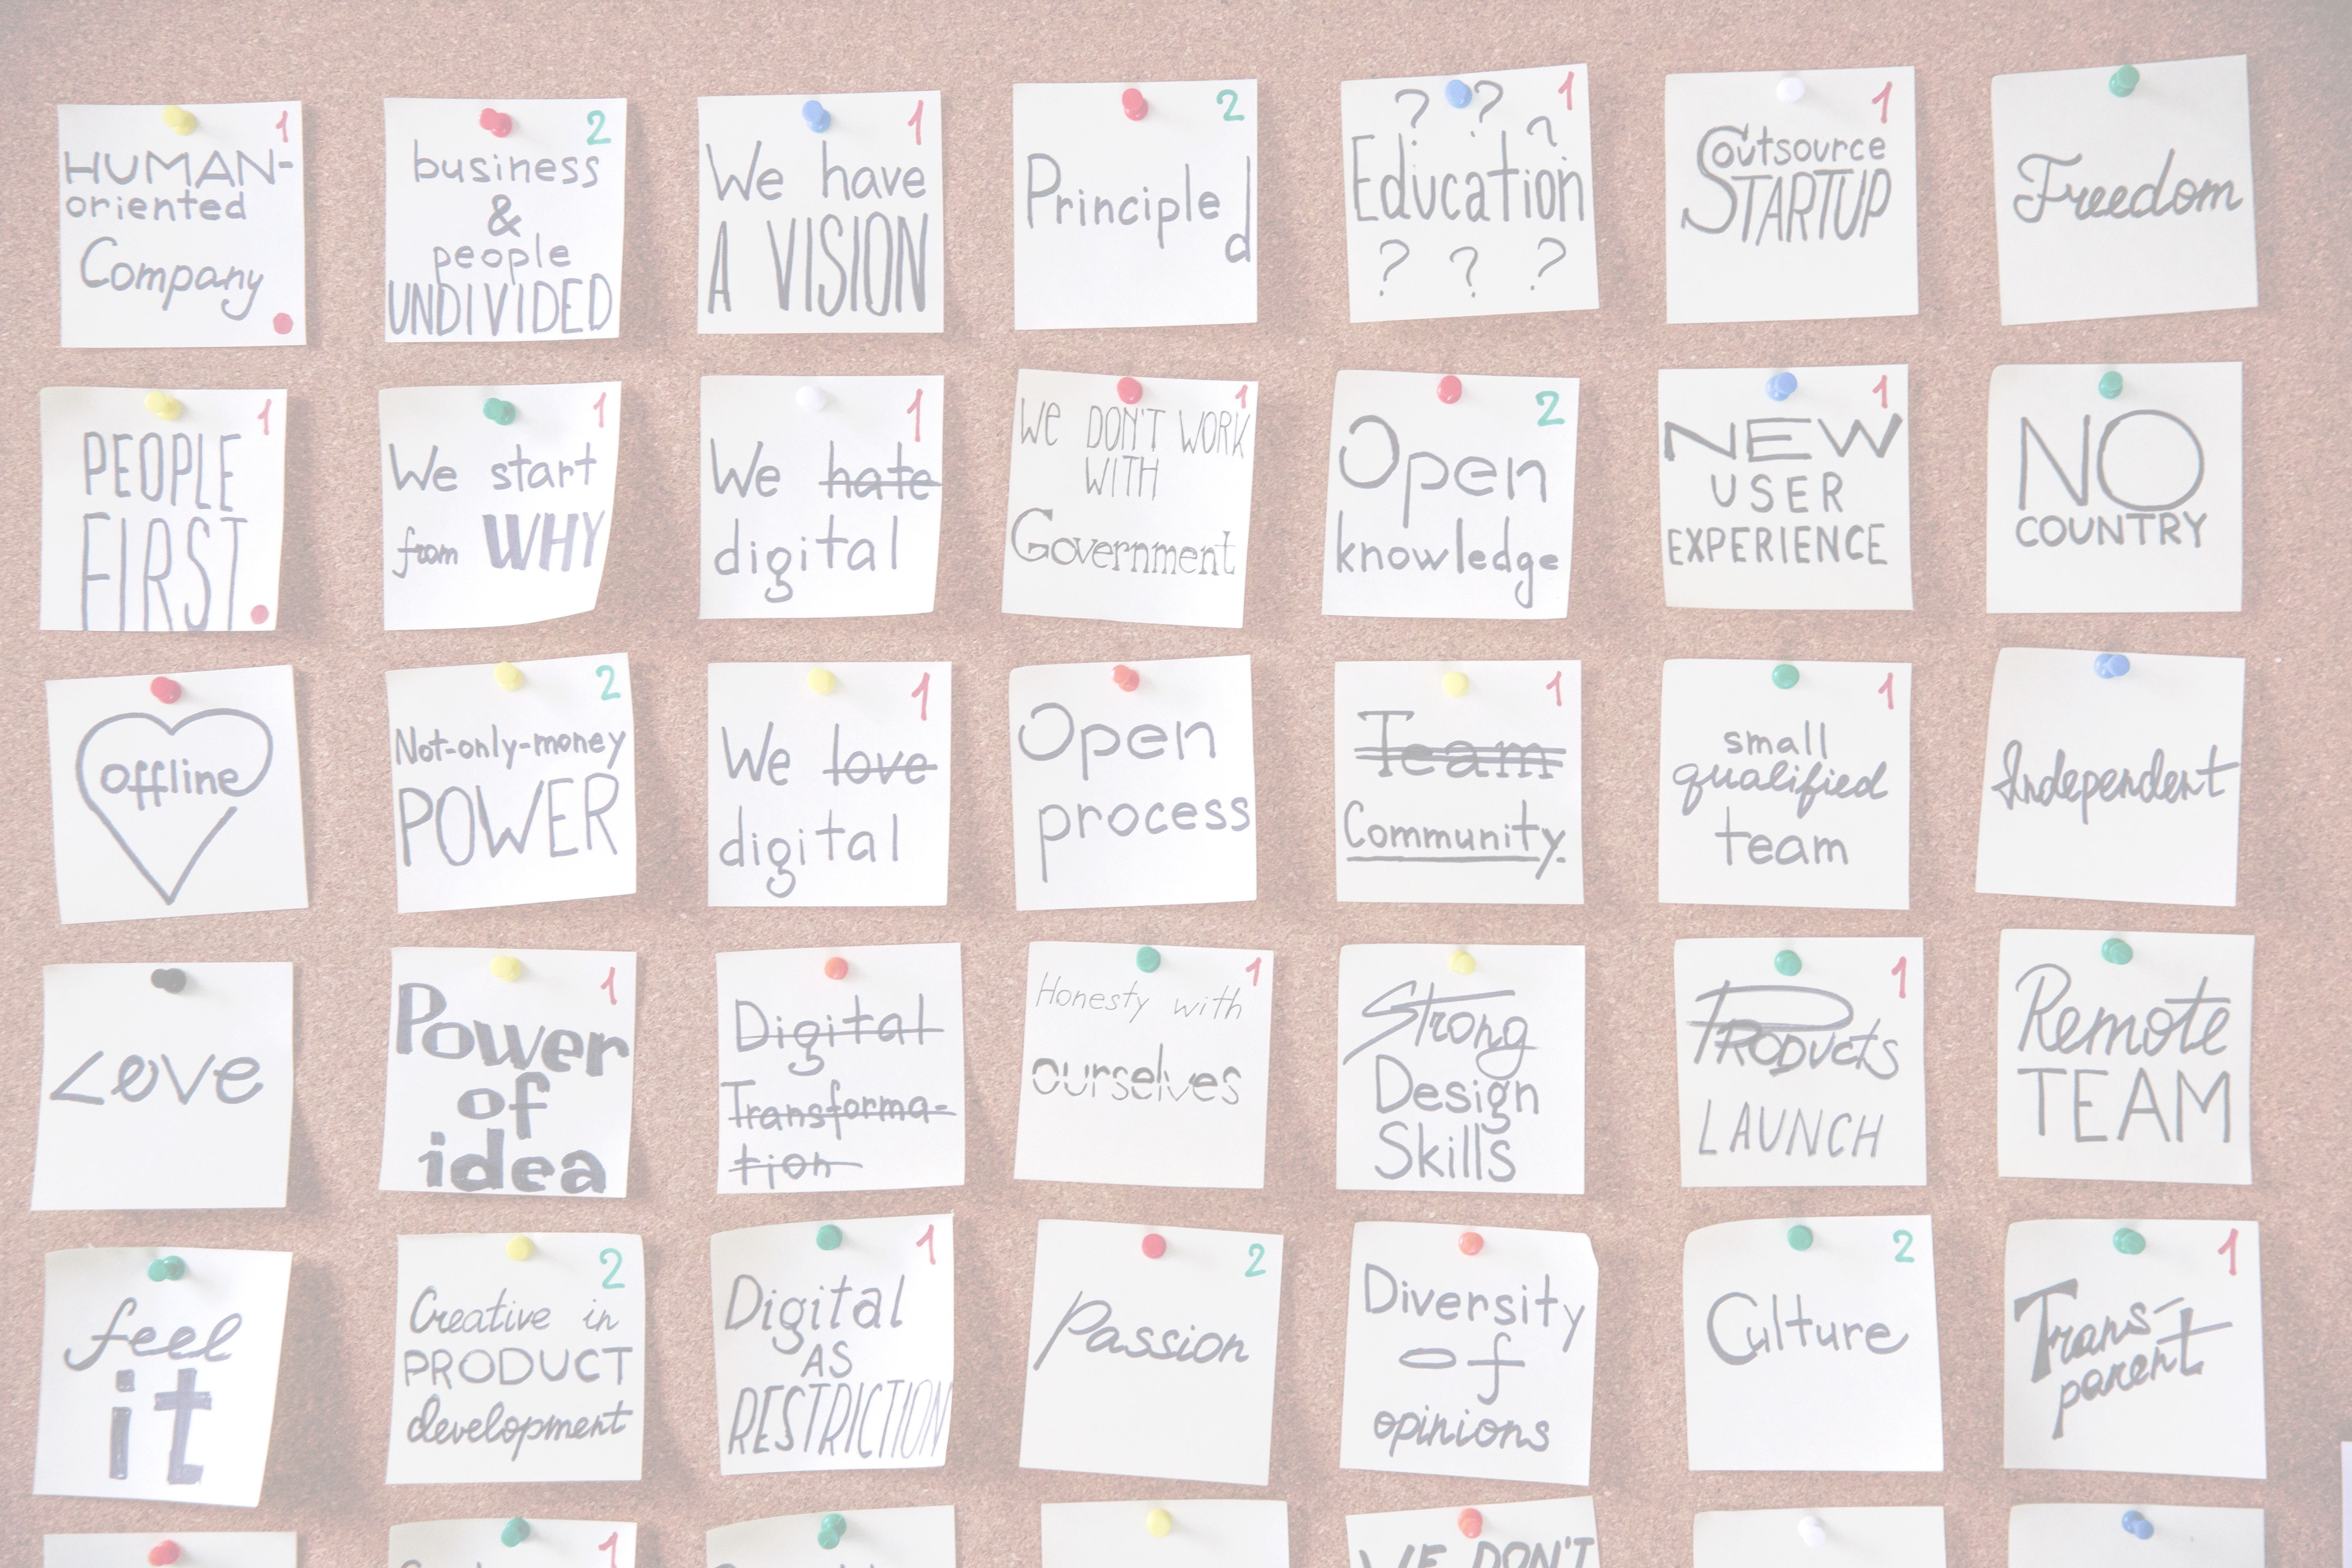 1
HUMAN-
oriented
Company
2
business
&
people
UNDIVIDED
1
We have
A VISION
2
Principle
d
? ? 1
?
Education
? ? ?
1
Outsource
STARTUP
Freedom
1
PEOPLE
FIRST
1
We start
from WHY
1
We hate
digital
1
WE DON'T WORK
WITH
Government
2
Open
knowledge
1
NEW
USER
EXPERIENCE
NO
COUNTRY
offline
2
Not-only-money
POWER
1
We love
digital
Open
process
1
Team
Community.
1
small
qualified
team
Independent
Love
1
Power
of
idea
Digital
Transforma-
tion
1
Honesty with
ourselves
Strong
Design
Skills
1
PRODUCTS
LAUNCH
Remote
TEAM
feel
it
2
Creative in
PRODUCT
development
1
Digital
AS
RESTRICTION
2
Passion
Diversity
of
opinions
2
Culture
1
Trans-
parent
1
WE DON'T